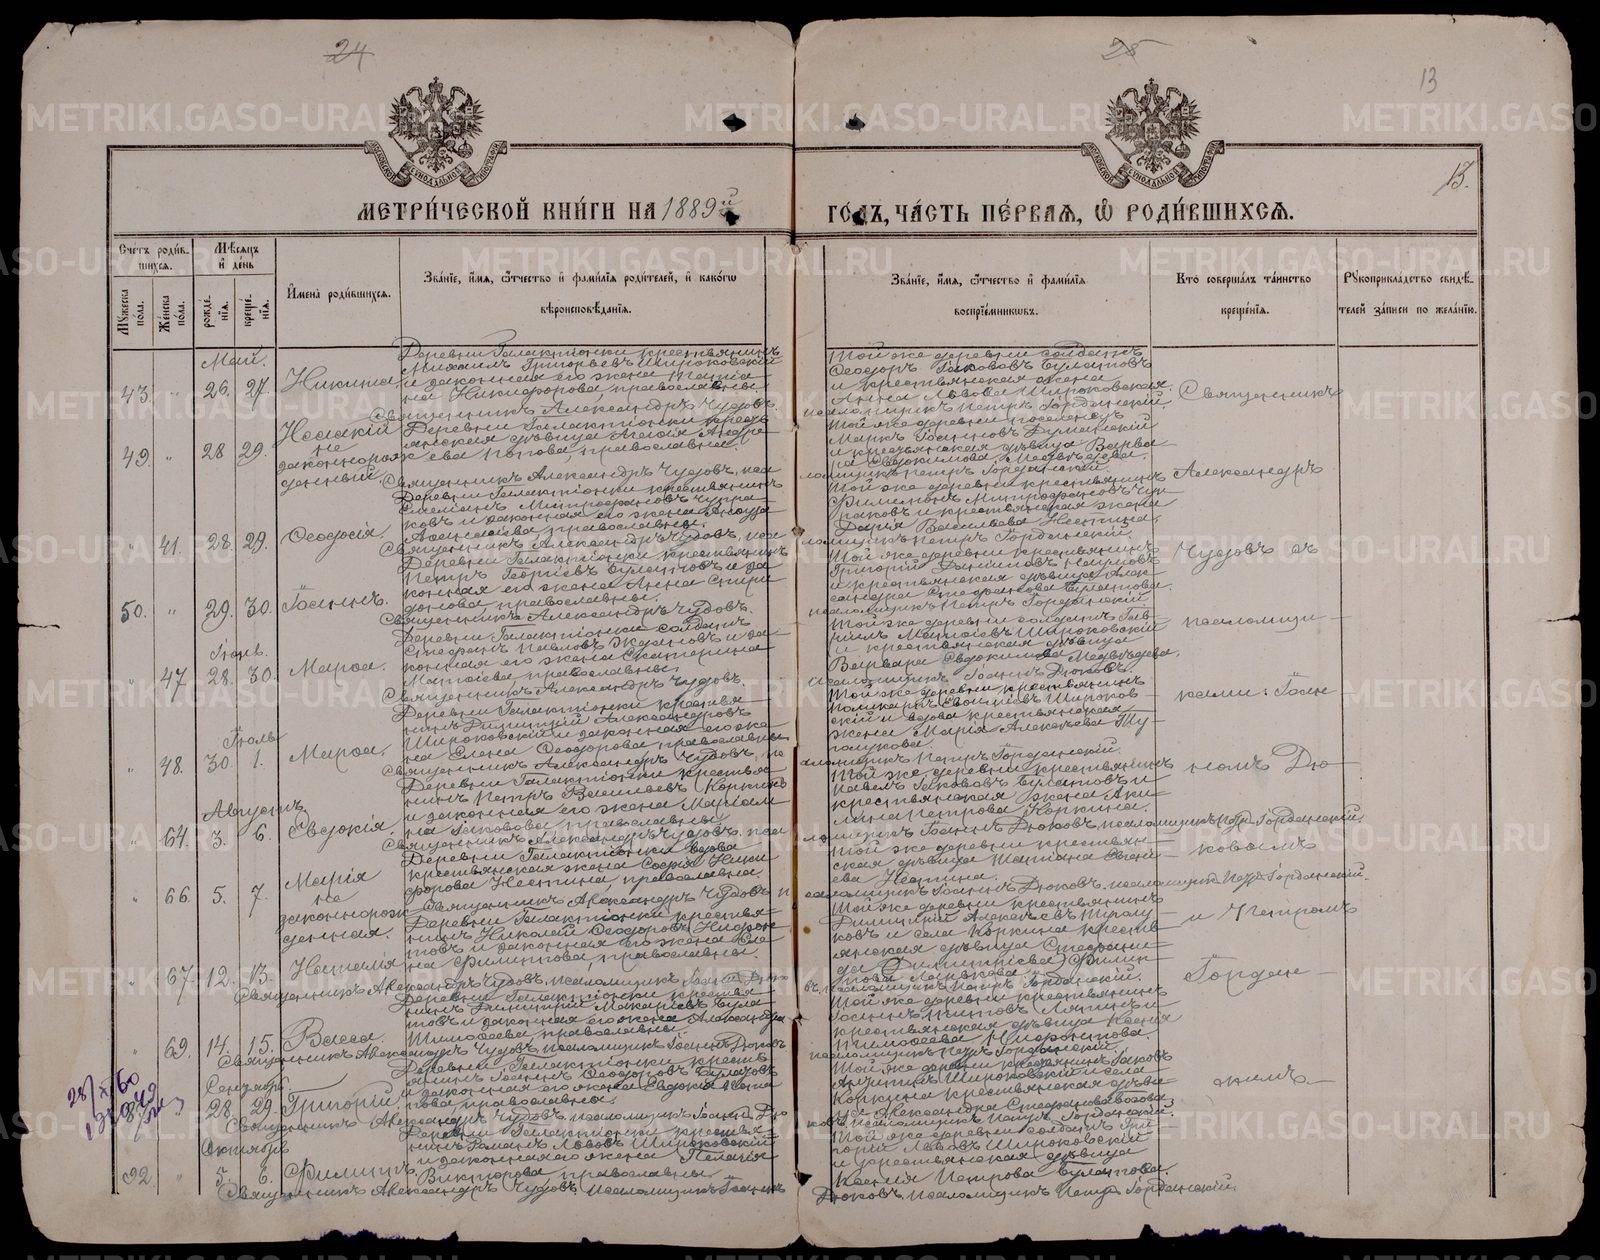 24
25
13
13.
МЕТРИ́ЧЕСКОЙ КНИ́ГИ НА 1889й
ГОДЪ, ЧА́СТЬ ПЕ́РВАЯ, Ѡ҆ РОДИ́ВШИХСЯ.
Счетъ роди́вшихся.
Мужеска пола.
Же́нска пола.
Мѣсяцъ и҆ де́нь
рожде́нїѧ.
креще́нїѧ.
И҆мена̀ роди́вшихся.
Зва́нїе, и҆́мѧ, ѻ҆́тчество и҆ фами́лїѧ роди́телей, и҆ како́гѡ
вѣроисповѣ́данїѧ.
Зва́нїе, и҆́мѧ, ѻ҆́тчество и҆ фами́лїѧ
воспрїе́мникѡвъ.
Кто̀ соверша́лъ та́инство
креще́нїѧ.
Рукоприкла́дство свидѣ́телей за́писи по жела́нїю.
Май.
43. " 26. 27. Никита
Деревни Галактіонки крестьянинъ
Михаилъ Григорьевъ Широковскій
и законная его жена Татіа
на Никифорова, православны.
Священникъ Александръ Чудовъ.
Той же деревни солдатъ
Ѳеодоръ Іакововъ Булатовъ
и крестьянская жена
Анна Львова Широковская.
псаломщикъ Петръ Горданскій.
Священникъ
49. " 28 29. Исаакій
не
законнорож
денный.
Деревни Галактіонки кресть
янская дѣвица Агаѳія Андре
ева Попова, православная.
Священникъ Александръ Чудовъ, пса
Той же деревни поселенецъ
Маркъ Іоанновъ
и крестьянская дѣвица Варва
ра Евдокимова Медвѣдева.
ломщикъ Петръ Горданскій.
Александръ
" 41. 28. 29. Ѳеодосія.
Деревни Галактіонки крестьянинъ
Емеліанъ Митрофановъ Чупра
ковъ и законная его жена
православны.
Священникъ Александръ Чудовъ, пса
Той же деревни крестьянинъ
Филимонъ Митрофановъ Чуп
раковъ и крестьянская жена
Дарія Васильева Нестина.
ломщикъ Петръ Горданскій.
50. " 29. 30. Іоаннъ.
Деревни Галактіонки крестьянинъ
Петръ Георгіевъ Булатовъ и за
конная его жена Анна Спири
донова православны.
Священникъ Александръ Чудовъ.
Той же деревни крестьянинъ
Григорій Даніиловъ Наумовъ
и крестьянская дѣвица Алек
сандра Стефанова Булатова.
псаломщикъ Петръ Горданскій
Чудовъ съ
Іюнь.
" 47 28. 30. Марѳа.
Деревни Галактіонки солдатъ
Стефанъ Павловъ Ждановъ и за
конная его жена Екатерина
Матѳіева, православны.
Священникъ Александръ Чудовъ.
Той же деревни солдатъ Гав
ріилъ Матѳіевъ Широковскій
и крестьянская дѣвица
Варвара Евдокимова Медвѣдева.
псаломщикъ Іоаннъ Дюковъ.
псаломщи
Іюль
" 48. 30. 1. Марѳа.
Деревни Галактіонки крестья
нинъ Димитрій Александровъ
Широковскій и законная его же
на Елена Ѳеодорова, православны.
Священникъ Александръ Чудовъ, пс
Той же деревни крестьянинъ
Поликарпъ Евѳиміевъ Широков
скій и вдова крестьянская
жена Марія Алексѣева Ту
голукова.
аломщикъ Петръ Горданскій.
ками: Іоан
Августъ
" 64. 3. 6. Евдокія.
Деревни Галактіонки крестья
нинъ Петръ Васильевъ Коркинъ
и законная его жена Маріам
на Іаковова, православны.
Священникъ Александръ Чудовъ, пса
Той же деревни крестьянинъ
Павелъ Іакововъ Булатовъ и
крестьянская жена Аки
лина Петрова Коркина.
ломщикъ Іоаннъ Дюковъ, псаломщикъ Петръ Горданскій.
номъ Дю
" 66. 5. 7. Марія
не
законнорож
денная.
Деревни Галактіонки вдова
крестьянская жена Софія Ники
форова Нестина, православна.
Священникъ Александръ Чудовъ п
Той же деревни крестьян
ская дѣвица Татіана Евгені
ева Нестина.
саломщикъ Іоаннъ Дюковъ, псаломщикъ Петръ Горданскій.
ковымъ
" 67. 12. 13. Наталія
Деревни Галактіонки крестья
нинъ Николай Ѳеодоровъ Нифон
товъ и законная его жена Еле
на Филиппова, православны.
Священникъ Александръ Чудовъ, псаломщикъ Іоаннъ Дюко
Той же деревни крестьянинъ
Димитрій Алексѣевъ Туголу
ковъ и села Коркина кресть
янская дѣвица Стефани
да Димитріева Филип
това
въ, псаломщикъ Петръ Горданскій.
и Петромъ
" 69. 14. 15. Васса.
Деревни Галактіонки крестья
нинъ Димитрій Макаріевъ Була
товъ и законная его жена Александра
Тимоѳеева православны.
Священникъ Александръ Чудовъ, псаломщикъ Іоаннъ Дюковъ
Той же деревни крестьянинъ
Іоаннъ Титовъ Ляпинъ и
крестьянская дѣвица Ксенія
Тимоѳеева Нифонтова.
псаломщикъ Петръ Горданскій.
Гордан
Сентябрь.
28. 29. Григорій
Деревни Галактіонки кресть
янинъ Іоаннъ Ѳеодоровъ Булатовъ
и законная его жена Евдокія
православны.
Священникъ Александръ Чудовъ, псаломщикъ Іоаннъ Дю
Той же деревни крестьянинъ Іаковъ
Широковскій и села
Коркина крестьянская дѣви
ца Александра Стефанова
ковъ, псаломщикъ Петръ Горданскій.
скимъ
Октябрь
92. " 5. 6. Филиппъ.
Деревни Галактіонки крестья
нинъ Романъ Львовъ Широковскій
и законная его жена Пелагія
Викторова, православны
Священникъ Александръ Чудовъ псаломщикъ Іоаннъ
Той же деревни солдатъ Гри
горій Львовъ Широковскій
и крестьянская дѣвица
Ксенія Петрова Булатова.
Дюковъ, псаломщикъ Петръ Горданскій.
METRIKI.GASO-URAL.RU